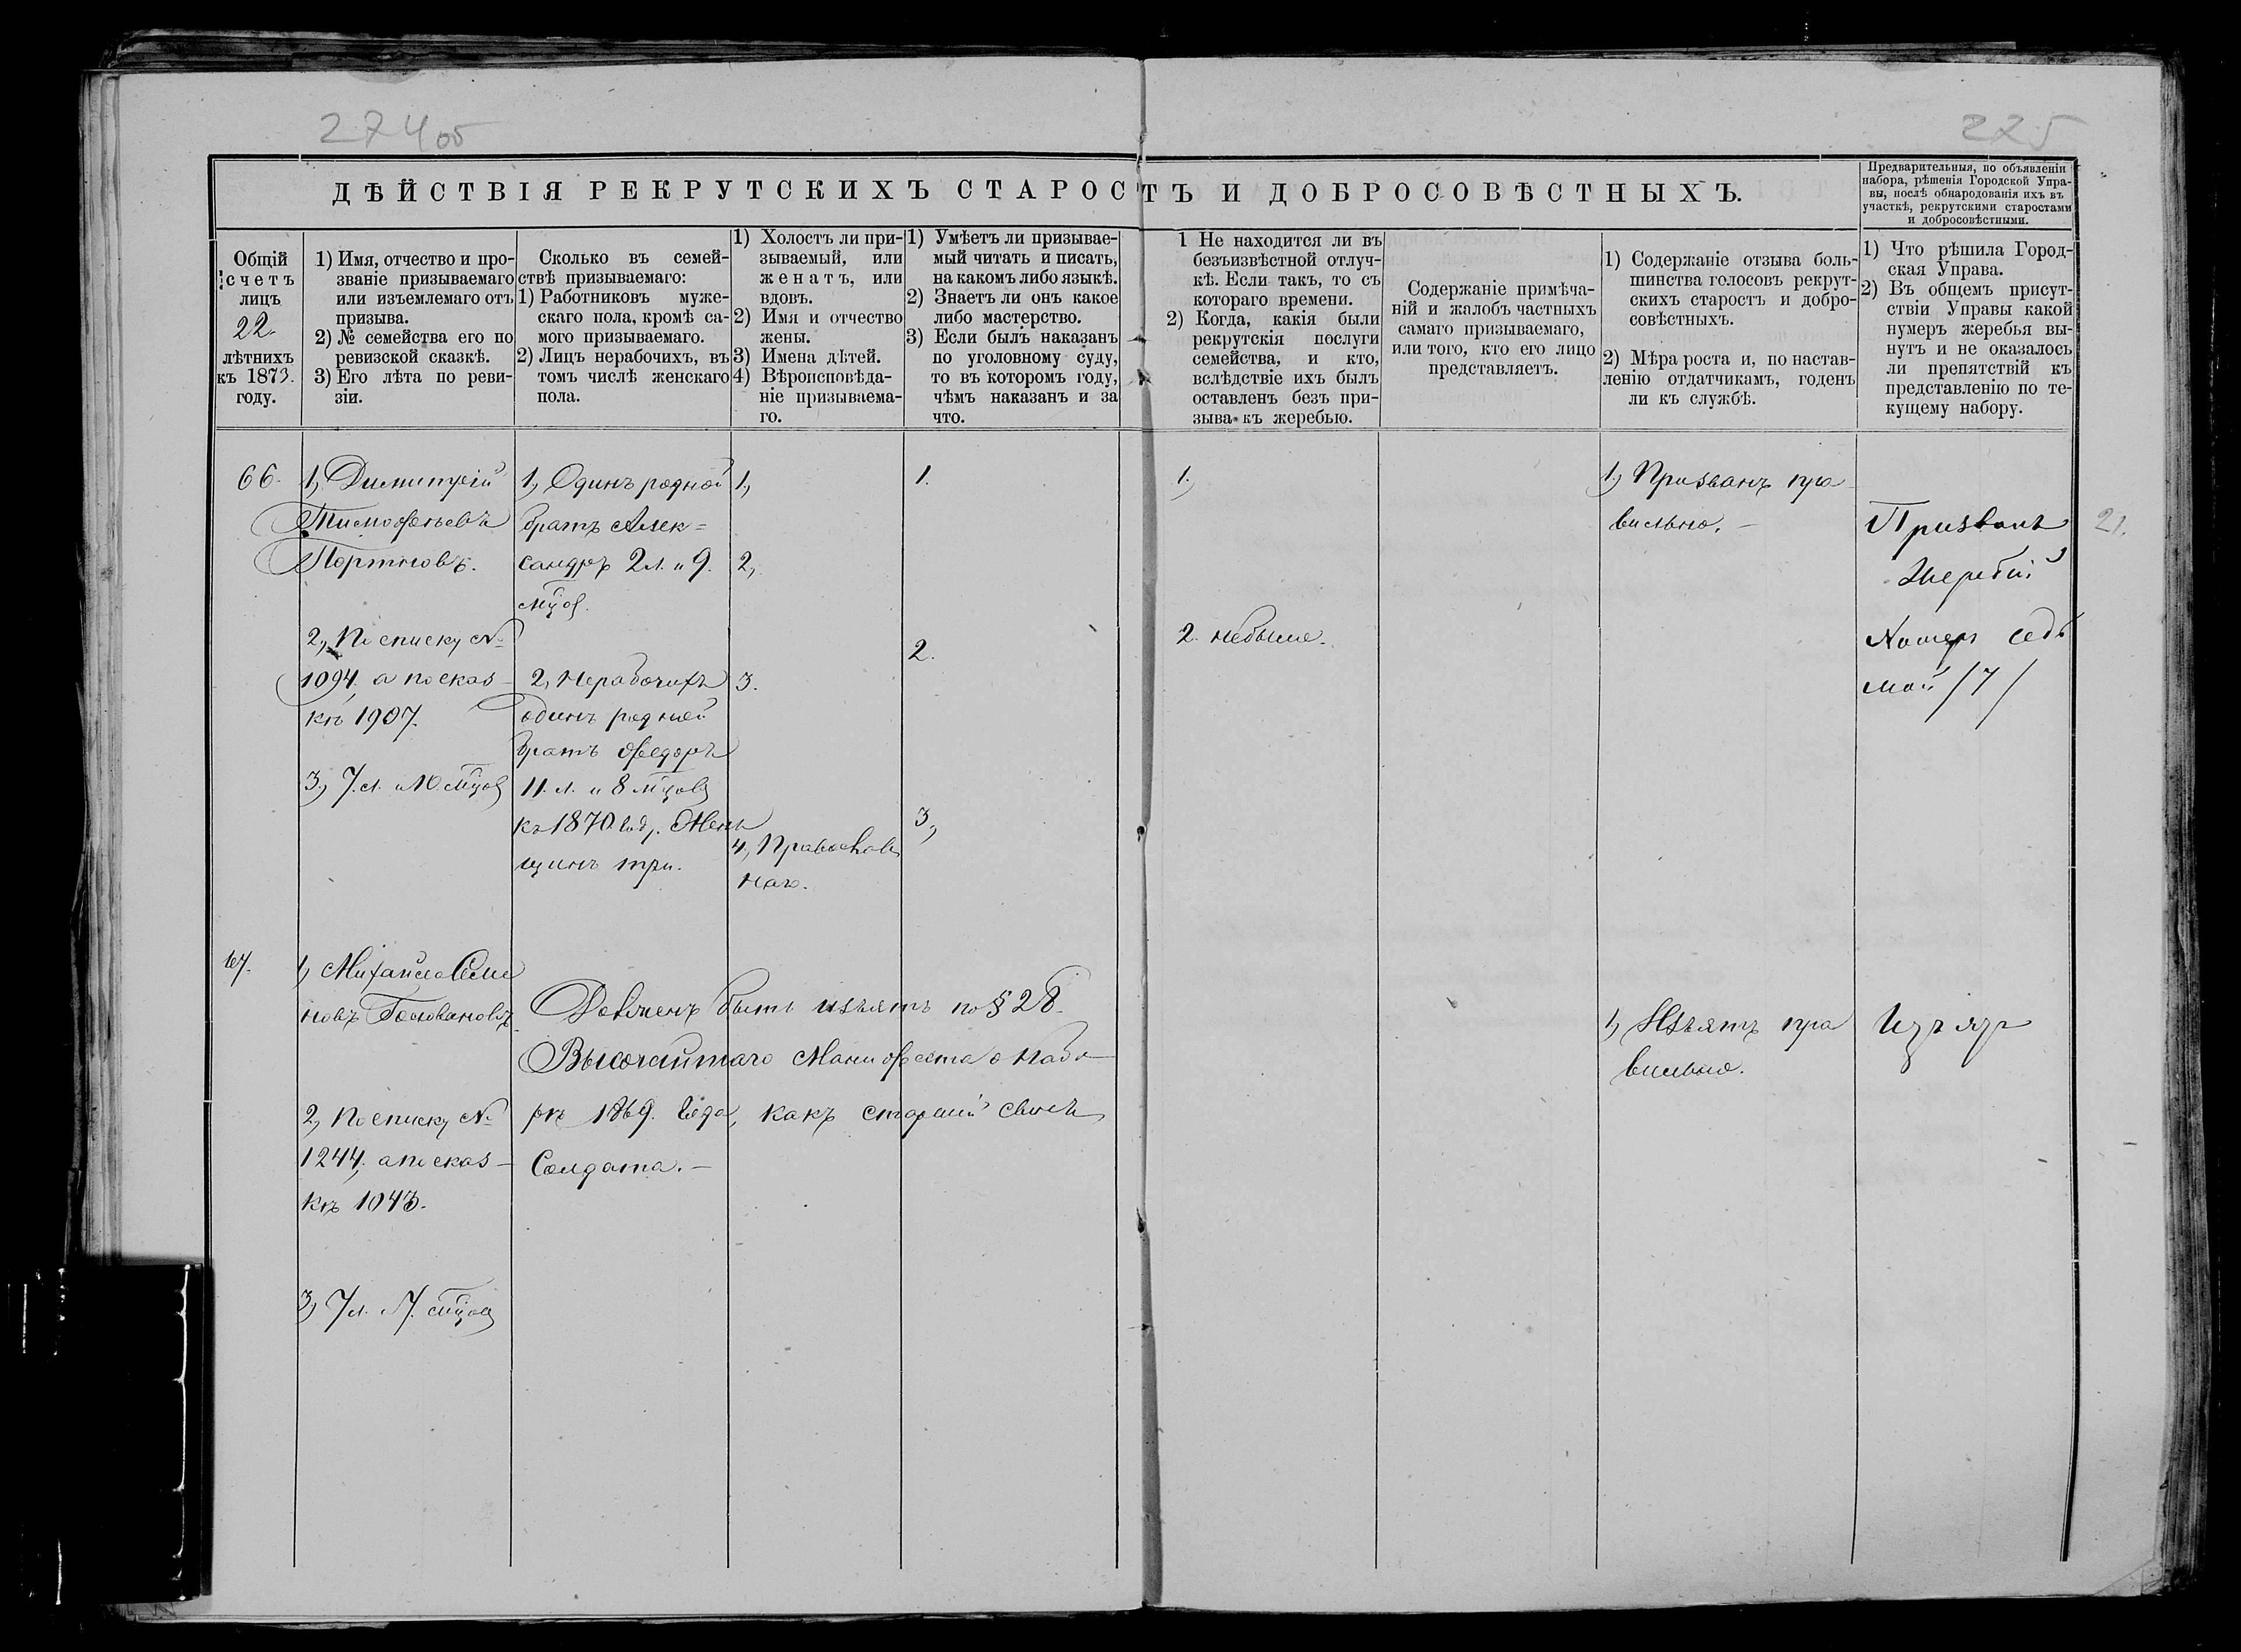 274 об
225
ДѢЙСТВІЯ РЕКРУТСКИХЪ СТАРОСТЪ И ДОБРОСОВѢСТНЫХЪ.
Предварительныя, по объявленіи
набора, рѣшенія Городской Упра-
вы, послѣ обнародованія ихъ въ
участкѣ, рекрутскими старостами
и добросовѣстными.
Общій
счетъ
лицъ
22
лѣтнихъ
къ 1873.
году.
1) Имя, отчество и про-
званіе призываемаго
или изъемлемаго отъ
призыва.
2) № семейства его по
ревизской сказкѣ.
3) Его лѣта по реви-
зіи.
Сколько въ семей-
ствѣ призываемаго:
1) Работниковъ муже-
скаго пола, кромѣ са-
мого призываемаго.
2) Лицъ нерабочихъ, въ
томъ числѣ женскаго
пола.
1) Холостъ ли при-
зываемый, или
женатъ, или
вдовъ.
2) Имя и отчество
жены.
3) Имена дѣтей.
4) Вѣроисповѣда-
ніе призываема-
го.
1) Умѣетъ ли призывае-
мый читать и писать,
на какомъ либо языкѣ.
2) Знаетъ ли онъ какое
либо мастерство.
3) Если былъ наказанъ
по уголовному суду,
то въ которомъ году,
чѣмъ наказанъ и за
что.
1 Не находится ли въ
безъизвѣстной отлуч-
кѣ. Если такъ, то съ
котораго времени.
2) Когда, какія были
рекрутскія послуги
семейства, и кто,
вслѣдствіе ихъ былъ
оставленъ безъ при-
зыва къ жеребью.
Содержаніе примѣча-
ній и жалобъ частныхъ
самаго призываемаго,
или того, кто его лицо
представляетъ.
1) Содержаніе отзыва боль-
шинства голосовъ рекрут-
скихъ старостъ и добро-
совѣстныхъ.
2) Мѣра роста и, по настав-
ленію отдатчикамъ, годенъ
ли къ службѣ.
1) Что рѣшила Город-
ская Управа.
2) Въ общемъ присут-
ствіи Управы какой
нумеръ жеребья вы-
нутъ и не оказалось
ли препятствій къ
представленію по те-
кущему набору.
66.
1, Димитрій
Тимофеевъ
Портновъ.
2, По списку №
1094. а по сказ-
кѣ 1907.
3, 7. л. и 10. мцов
1, Одинъ родной
братъ Алек=
сандръ 2 л. и 9.
мцов.
2, Нерабочихъ
одинъ родной
братъ Федоръ
11. л. и 8 мцовъ
къ 1870. году. Жен
щинъ три.
1,
2,
3.
4, Православ
наго.
1.
2.
3,
1.,
2. небыло.
1., Призванъ пра
вильно. –
Призванъ
Жеребій
Номеръ седь
мой /7/
21.
67.
1, Михайло Семе
новъ Головановъ.
2, По списку №
1244, а по сказ-
кѣ 1043.
3, 7 л. 7. мцов
Долженъ быть изъятъ по § 28.
Высочайшаго Манифеста о набо-
рѣ 1869. года, какъ старшій сынъ
Солдата. –
1, Изъятъ пра
вильно.
Изъятъ